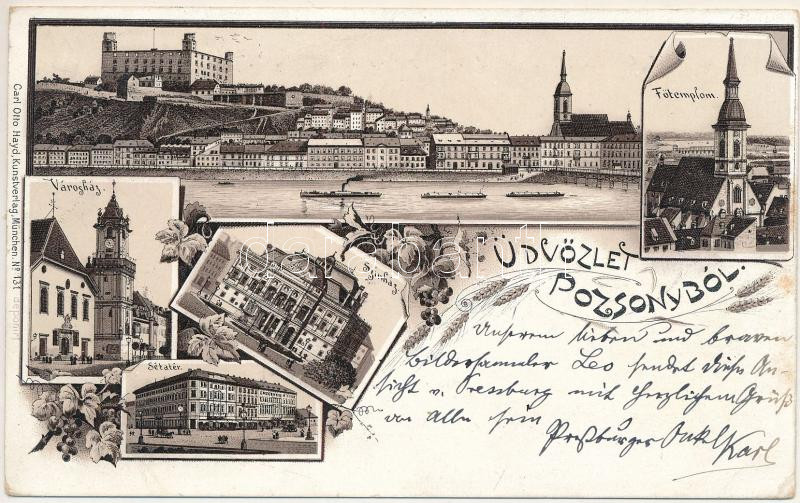 Carl Otto Hayd, Kunstverlag, München. No 131
Főtemplom.
Városház.
Színház.
Sétatér.
ÜDVÖZLET
POZSONYBÓL.
Unserem lieben und braven
Bildersammler Leo sendet diese An-
sicht v. Pressburg mit herzlichem Gruß
von Allen sein
Preßburger Onkel
Karl